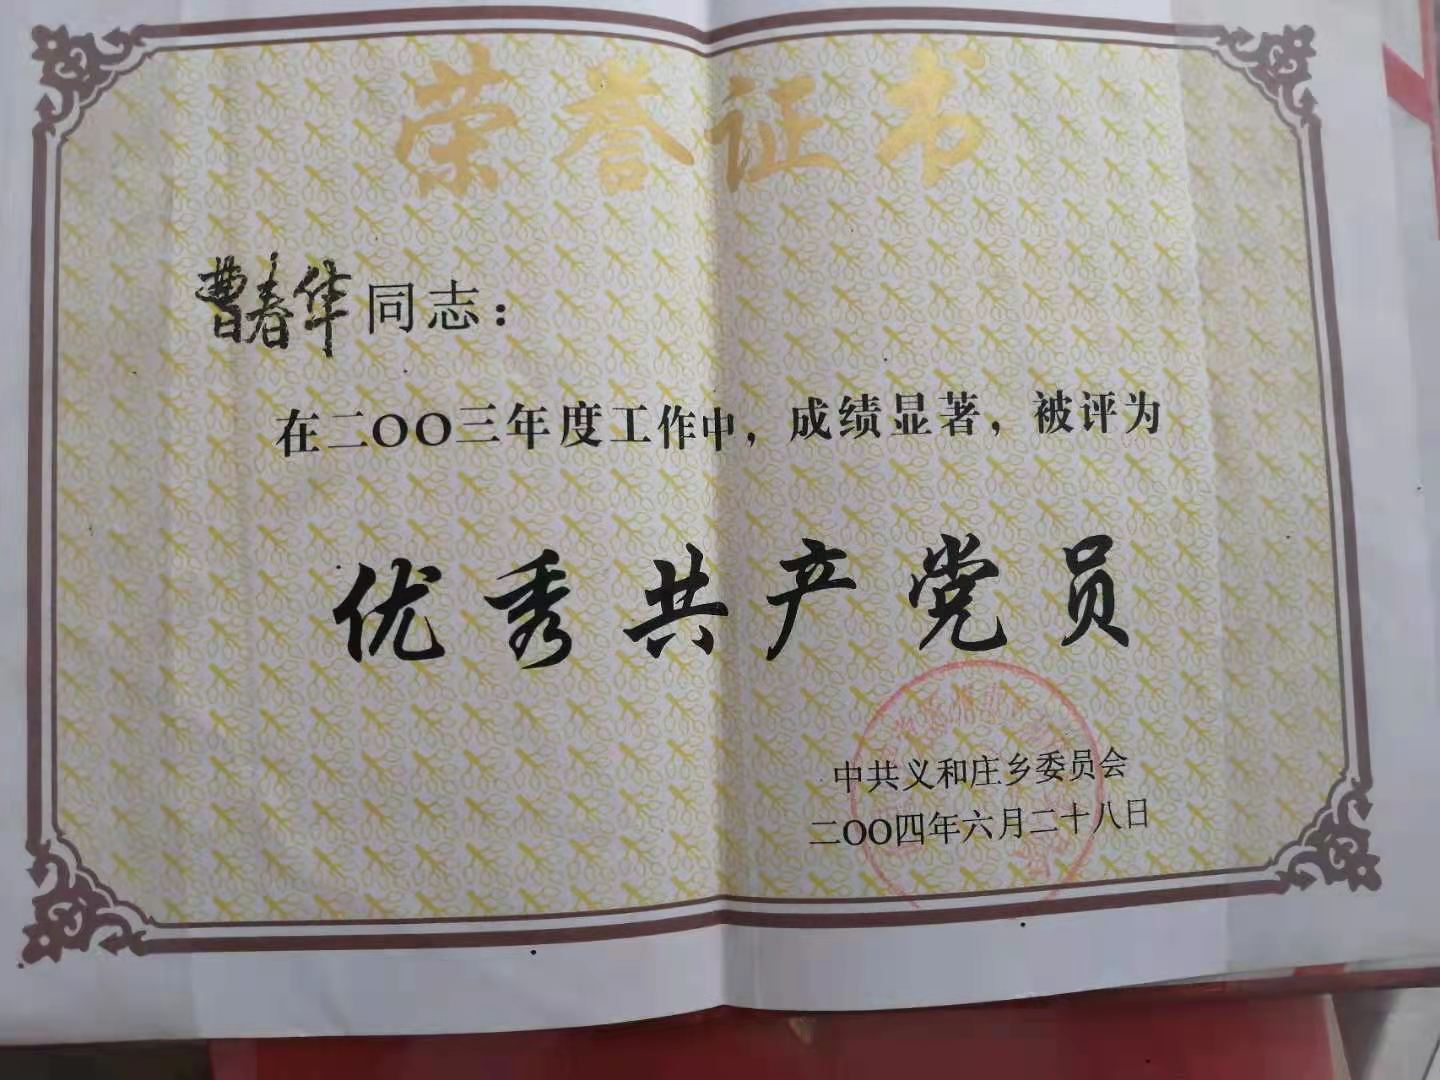 荣誉证书
曹春华同志：
在二〇〇三年度工作中，成绩显著，被评为
优秀共产党员
中共义和庄乡委员会
二〇〇四年六月二十八日